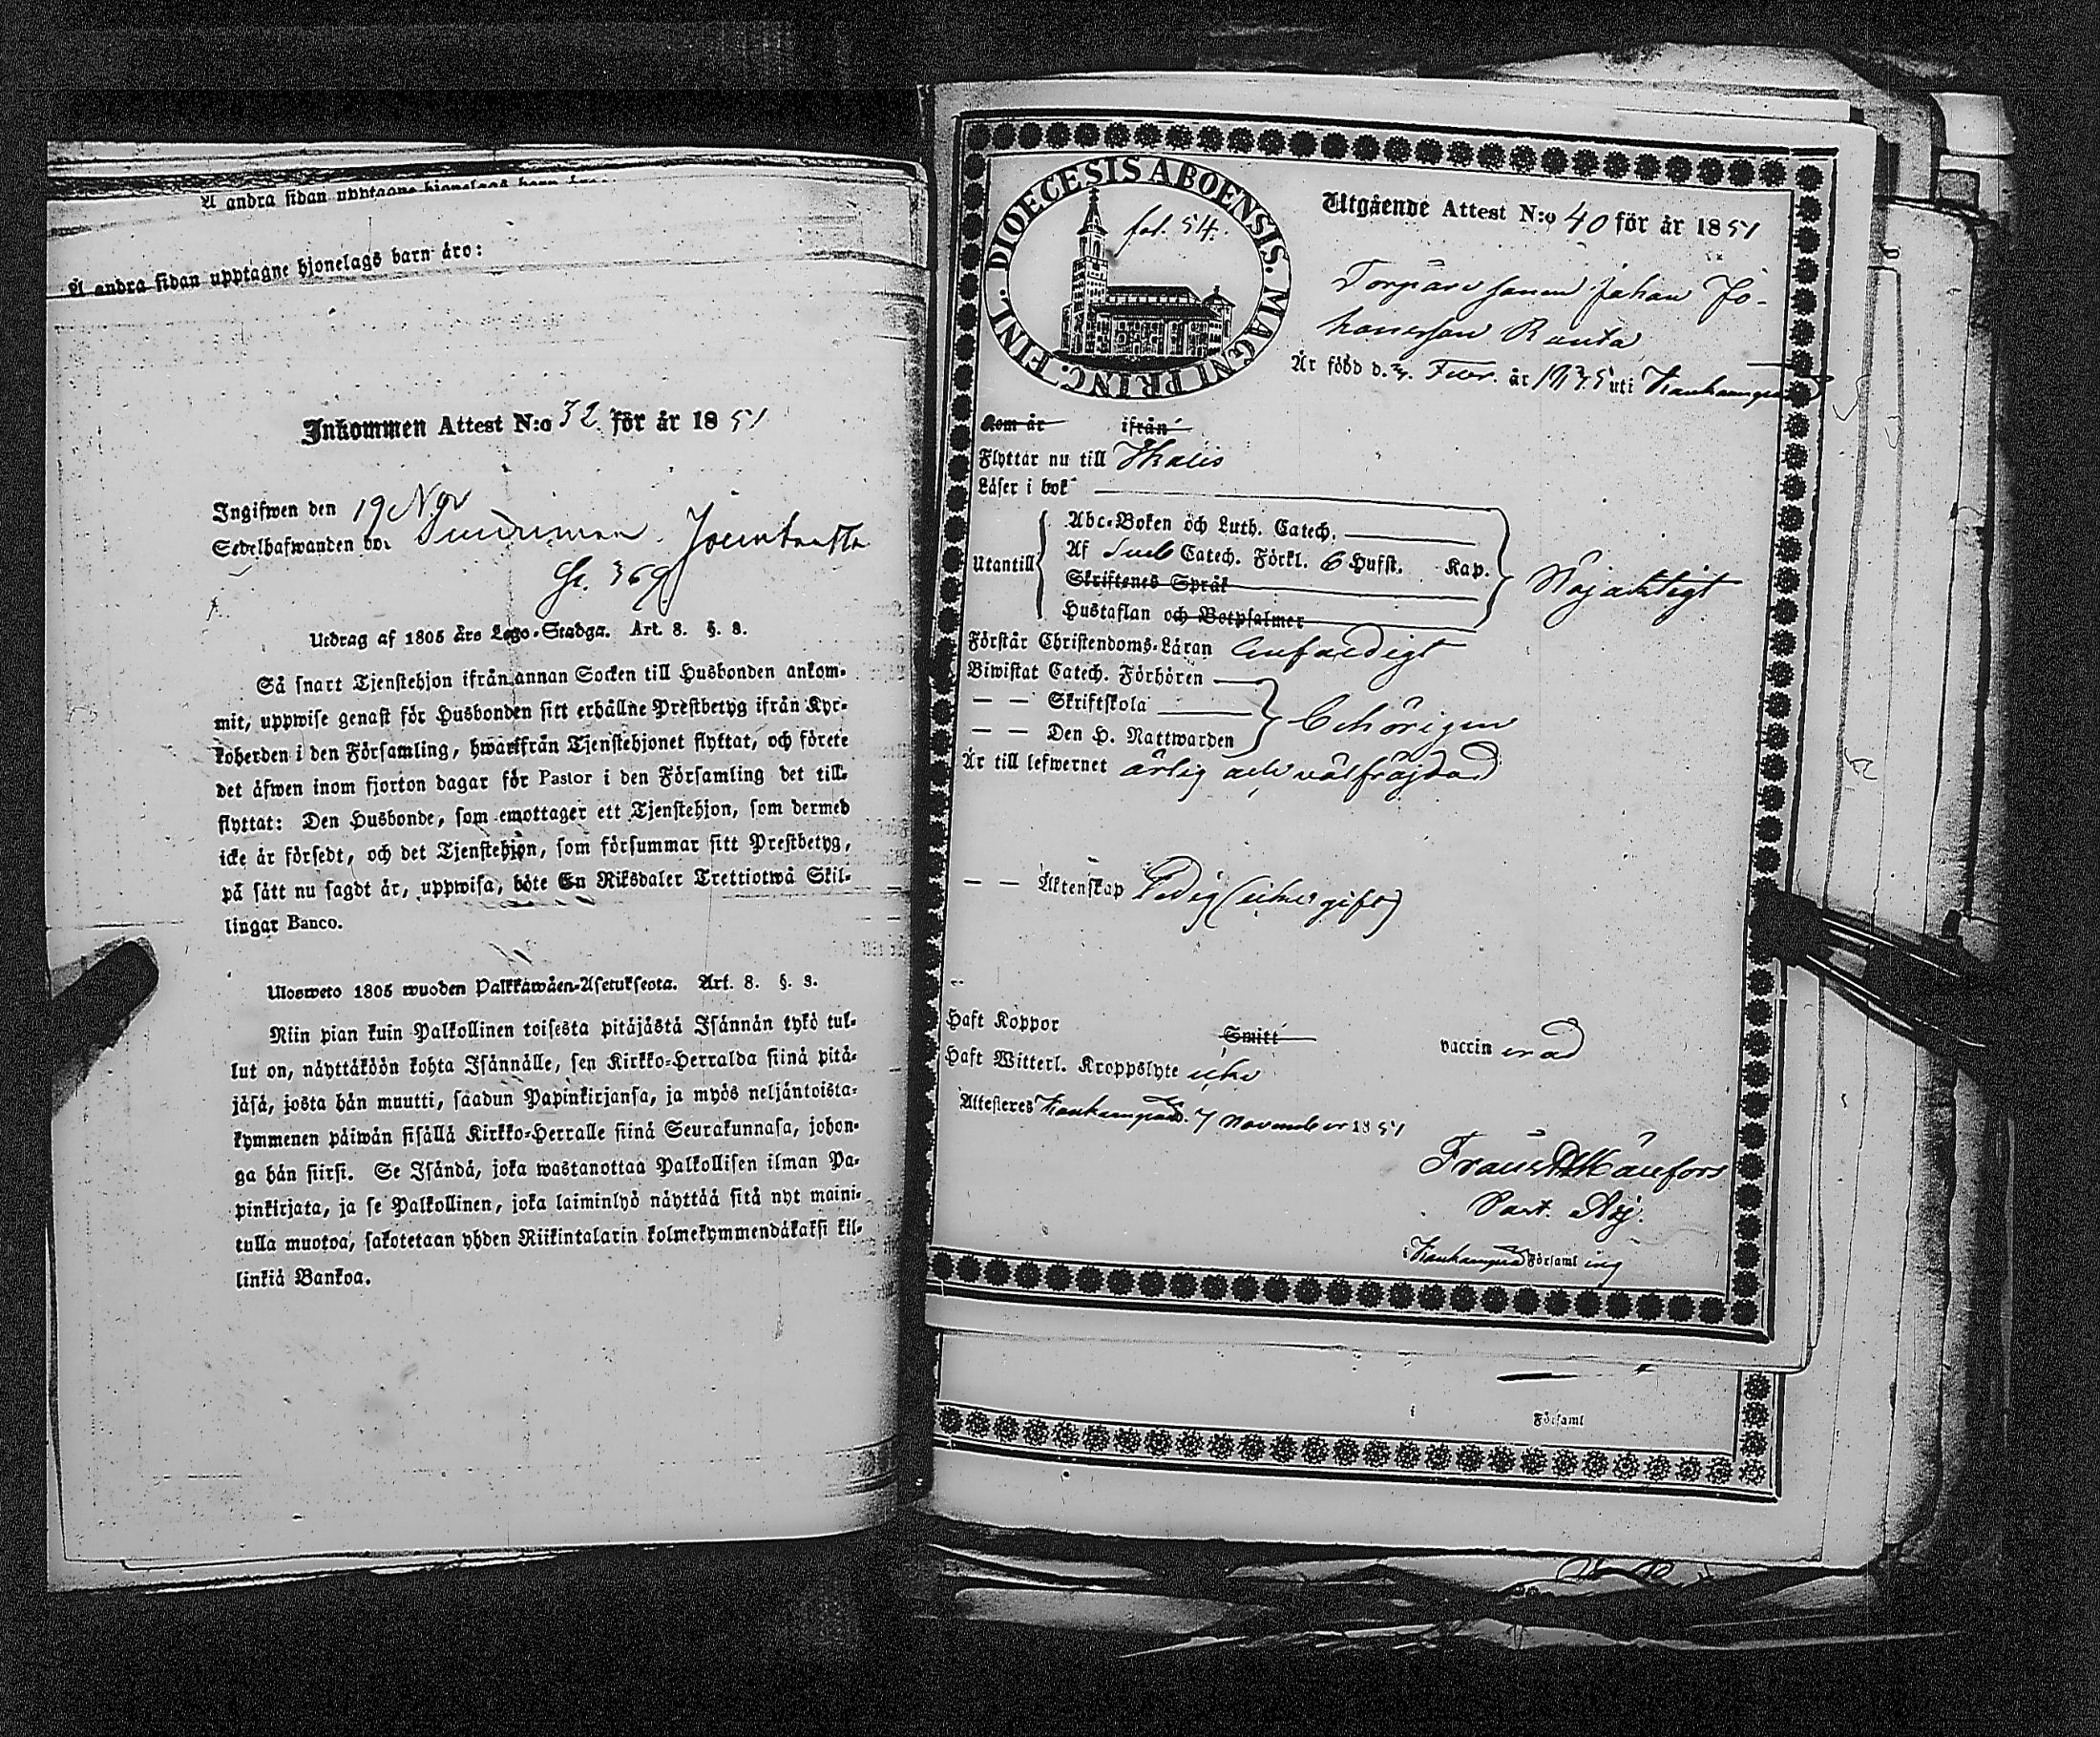 A andra sidan upptagne hjonelags barn äro:
A andra sidan upptagne hjonelags barn äro:
Inkommen Attest N:o 32 för år 1851
Ingifwen den 19 Nov
Sedelhafwanden bor
fol. 369
Utdrag af 1805 års Lego-Stadga. Art. 8. §. 3.
Så snart Tjenstehjon ifrån annan Socken till Husbonden ankom-
mit, uppwise genast för Husbonden sitt erhållne Prestbetyg ifrån Kyr-
koherden i den Församling, hwarifrån Tjenstehjonet flyttat, och förete
det äfwen inom fjorton dagar för Pastor i den Församling det till-
flyttat: Den Husbonde, som emottager ett Tjenstehjon, som dermed
icke är försedt, och det Tjenstehjon, som försummar sitt Prestbetyg,
på sätt nu sagdt är, uppwisa, böte En Riksdaler Trettiotwå Skil-
lingar Banco.
Ulosweto 1805 wuoden Palkkawäen-Asetuksesta. Art. 8. §. 3.
Niin pian kuin Palkollinen toisesta pitäjästä Isännän tykö tul-
lut on, näyttäköön kohta Isännälle, sen Kirkko-Herralda siinä pitä-
jäsä, josta hän muutti, saadun Papinkirjansa, ja myös neljäntoista-
kymmenen päiwän sisällä Kirkko-Herralle siinä Seurakunnasa, johon-
ga hän siirsi. Se Isändä, joka wastanottaa Palkollisen ilman Pa-
pinkirjata, ja se Palkollinen, joka laiminlyö näyttää sitä nyt maini-
tulla muotoa, sakotetaan yhden Riikintalarin kolmekymmendäkaksi kil-
linkiä Bankoa.
DIOECESIS ABOENSIS. MAGNI PRINC. FINL.
fol. 54.
Utgående Attest N:o 40 för år 1851
Torpare sonen Johan Jo-
hansson Ranta
Är född d. Febr. år 1835 uti Kankaanpää
Kom år ifrån
Flyttar nu till Ikalis
Läser i bok
Utantill
Abc-Boken och Luth. Catech.
Af Sveb Catech. Förkl. 6 Hufst. Kap.
Skriftenes Språk
Hustaflan och Botpsalmer
Nöjaktigt
Förstår Christendoms-Läran Enfaldigt
Biwistat Catech. Förhören
— — Skriftskola
— — Den H. Nattwarden
Behörigen
Är till lefwernet ärlig och välfräjdad
— — Äktenskap Ledig (icke gift)
Haft Koppor Smitt vaccin erad
Haft Witterl. Kroppslyte icke
Attesteres Kankaanpää. 7 November 1851
Past. Adj.
i Kankaanpää Församl ing
i Församl